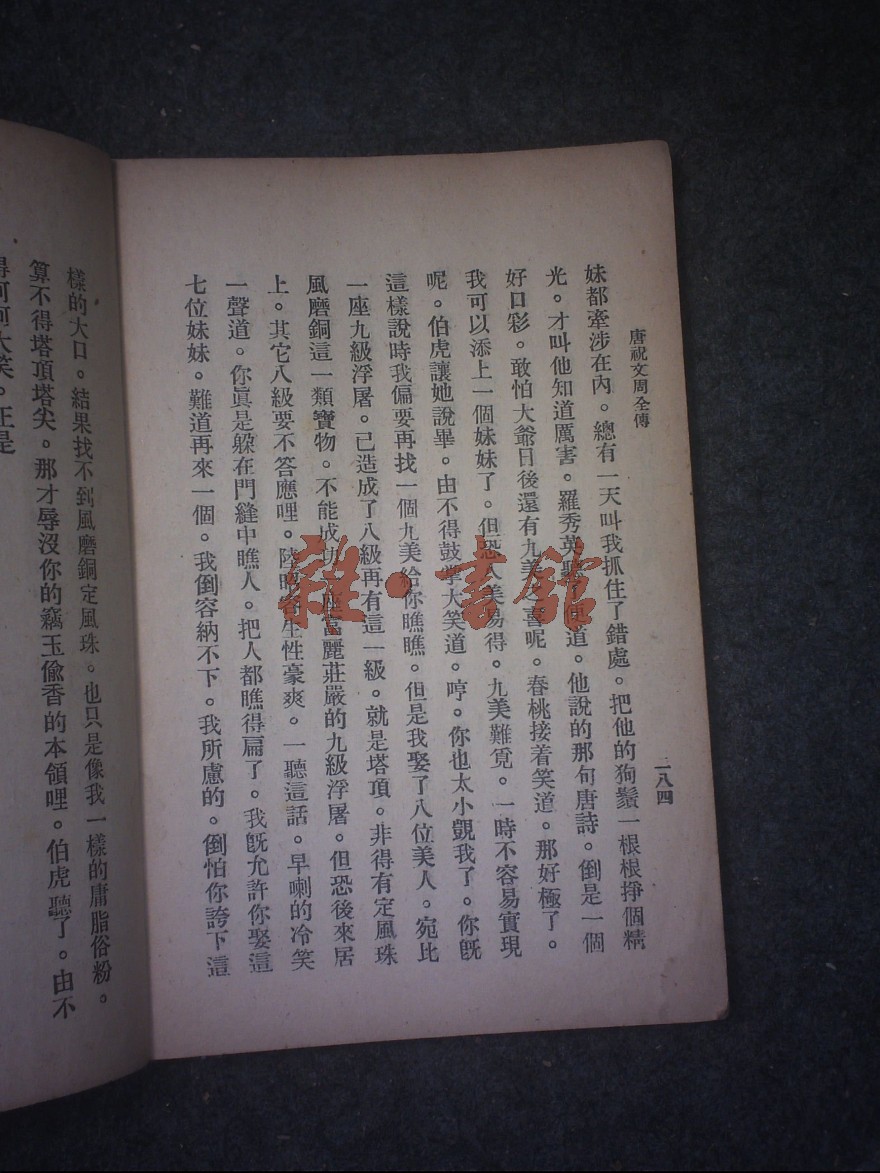 唐祝文周全傳
二八四
妹都牽涉在內。總有一天叫我抓住了錯處。把他的狗鬚一根根掙個精
光。才叫他知道厲害。羅秀英聽了便道。他說的那句唐詩。倒是一個
好口彩。敢怕大爺日後還有九美之喜呢。春桃接着笑道。那好極了。
我可以添上一個妹妹了。但恐八美易得。九美難覓。一時不容易實現
呢。伯虎讓她說畢。由不得鼓掌大笑道。哼。你也太小覷我了。你旣
這樣說時我偏要再找一個九美給你瞧瞧。但是我娶了八位美人。宛比
一座九級浮屠。已造成了八級再有這一級。就是塔頂。非得有定風珠
風磨銅這一類寶物。不能成功一座富麗莊嚴的九級浮屠。但恐後來居
上。其它八級要不答應哩。陸昭容生性豪爽。一聽這話。早喇的冷笑
一聲道。你眞是躱在門縫中瞧人。把人都瞧得扁了。我旣允許你娶這
七位妹妹。難道再來一個。我倒容納不下。我所慮的。倒怕你誇下這
樣的大口。結果找不到風磨銅定風珠。也只是像我一樣的庸脂俗粉。
算不得塔頂塔尖。那才辱沒你的竊玉偸香的本領哩。伯虎聽了。由不
得呵呵大笑。正是
雜·書館